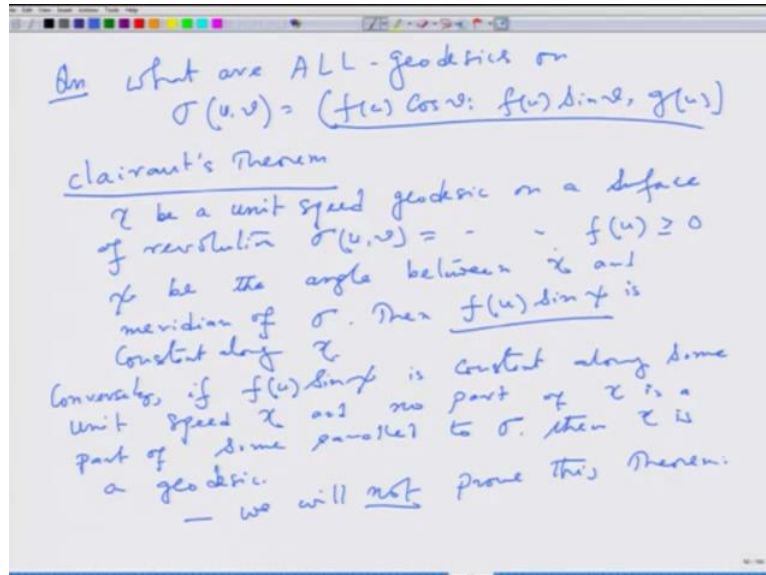 Qn what are ALL - geodesics on
σ(u,v) = (f(u) cos v, f(u) sin v, g(u))
Clairaut's Theorem
γ be a unit speed geodesic on a surface
of revolution σ(u,v) = - - f(u) ≥ 0
ψ be the angle between γ̇ and
meridian of σ. Then f(u) sin ψ is
constant along γ
Conversely, if f(u) sin ψ is constant along some
unit speed γ and no part of γ is a
part of some parallel to σ. then γ is
a geodesic.
— we will not prove this Theorem.